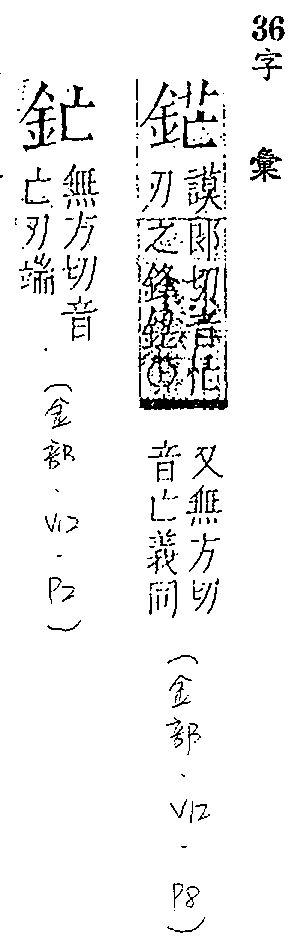 36
字彙
鋩
謨郎切音忙
刃之鋒鋩
又無方切
音亡義同
(金部·V12·P8)
釯
無方切音
亡刃端
(金部·V12·P2)